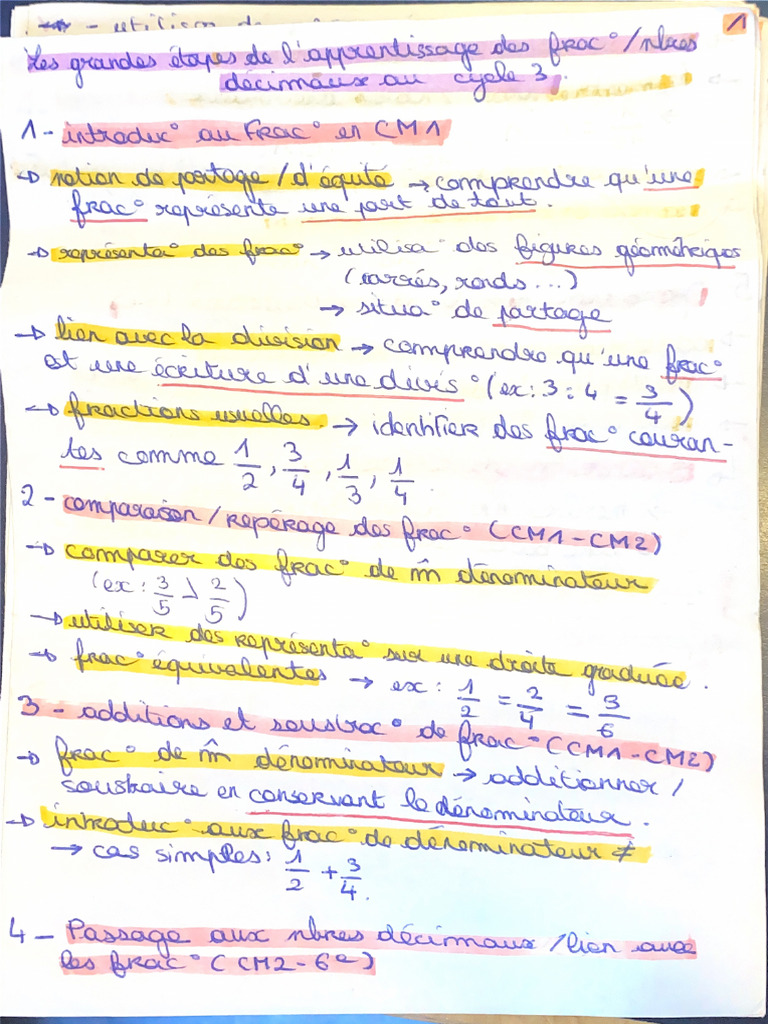 - utilism de
1
Les grandes étapes de l'apprentissage des frac°/nbres
décimaux au cycle 3.
1 - introduc° au Frac° en CM1
→ notion de partage / d'équité → comprendre qu'une
frac° représente une part de tout.
→ représenta° des frac° → utilisa° des figures géométriques
(carrés, ronds ...)
→ situa° de partage
→ lien avec la division → comprendre qu'une frac°
est une écriture d'une divis° (ex: 3 : 4 = 3/4)
→ fractions usuelles. → identifier des frac° couran-
tes comme 1/2, 3/4, 1/3, 1/4.
2 - comparaison / repérage des frac° (CM1-CM2)
→ comparer des frac° de m̂ dénominateur
(ex: 3/5 > 2/5)
→ utiliser des représenta° sur une droite graduée.
→ frac° équivalentes → ex: 1/2 = 2/4 = 3/6
3 - additions et soustrac° de frac° (CM1-CM2)
→ frac° de m̂ dénominateur → additionner /
soustraire en conservant le dénominateur.
→ introduc° aux frac° de dénominateur ≠
→ cas simples: 1/2 + 3/4.
4 - Passage aux nbres décimaux / lien avec
les frac° (CM2-6e)